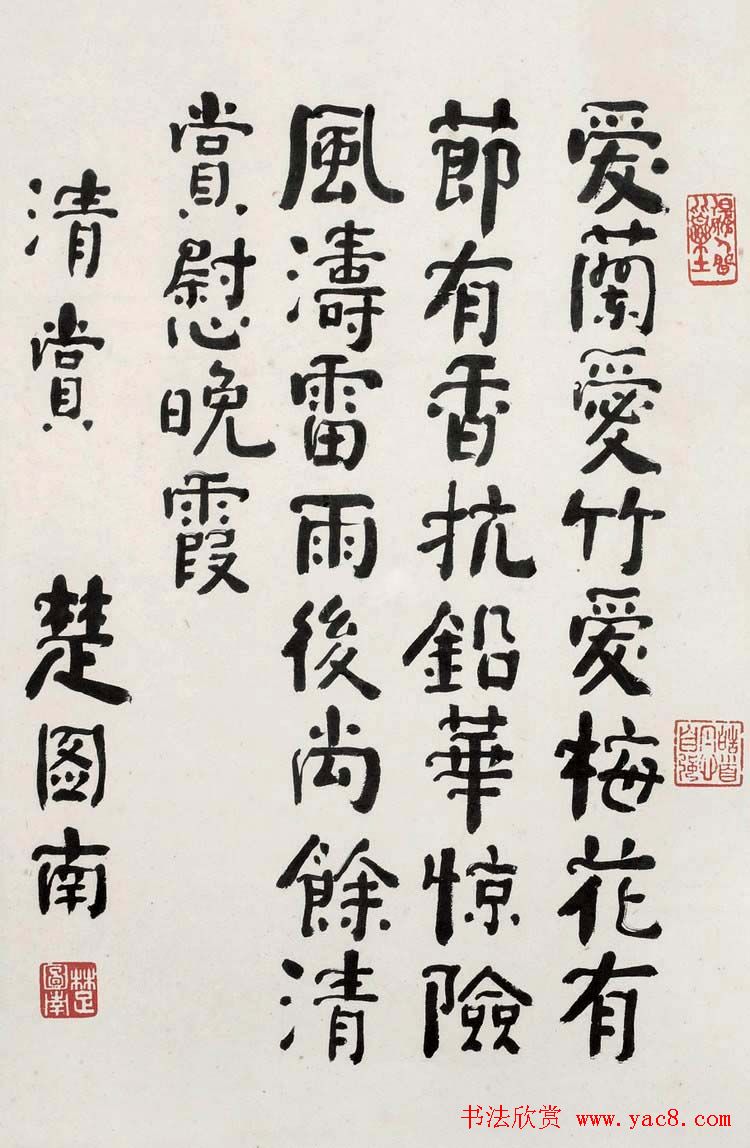 愛蘭愛竹愛梅花有
節有香抗鉛華惊險
風濤雷雨後尚餘清
賞慰晚霞
清賞 楚图南
皓首丹心
自強
楚圖南
书法欣赏 www.yac8.com